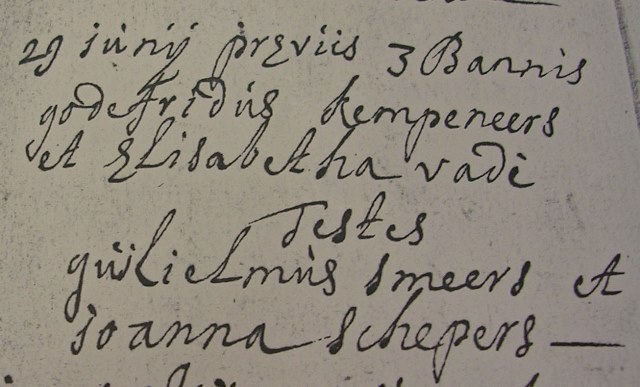 29 junij præviis 3 Bannis
godefridus kempeneers
et Elisabetha vadi
Testes
guilielmus smeers et
joanna schepers —